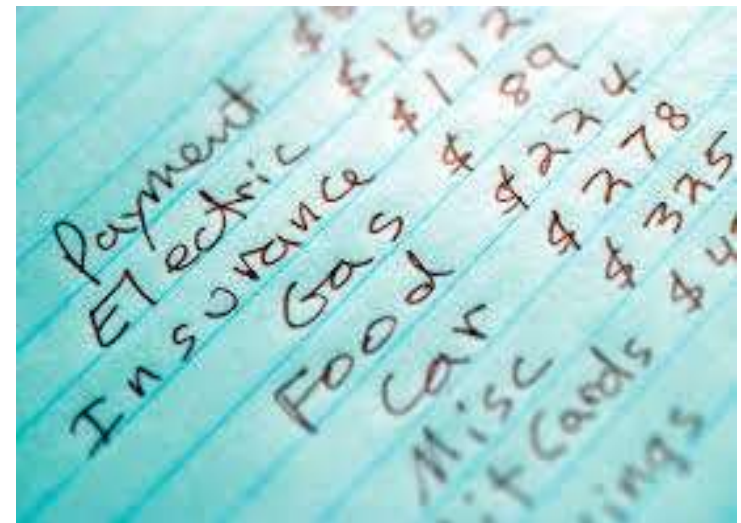 Payment $
Electric $16
Insurance $112
Gas $ 89
Food $224
Car $278
Misc $325
it Cards $4
ings